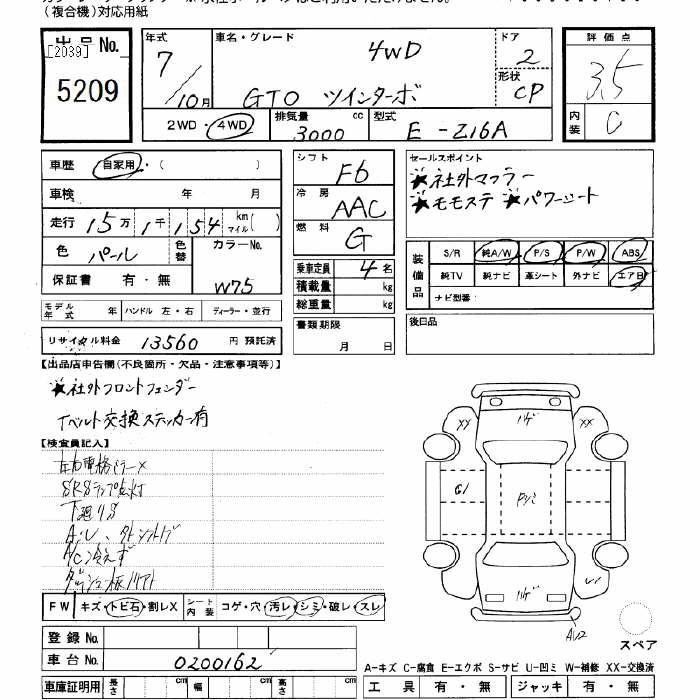 (複合機)対応用紙
出品No.
[2039]
5209
年式
7/10月
車名・グレード
4WD
GTO ツインターボ
ドア
2
形状
CP
評価点
3.5
内装
C
2WD・4WD
排気量 cc
3000
型式
E-Z16A
車歴 自家用・( )
車検 年 月
走行 15万1千154 km マイル( )
色 パール 色替 カラーNo. W75
保証書 有・無
シフト F6
冷房 AAC
燃料 G
乗車定員 4名
積載量 kg
総重量 kg
書類期限
月 日
セールスポイント
★社外マフラー
★モモステ ★パワーシート
装備品
S/R 純A/W P/S P/W ABS
純TV 純ナビ 革シート 外ナビ エアB
ナビ型番:
後日品
モデル年式 年 ハンドル 左・右 ディーラー・並行
リサイクル料金 13560 円 預託済
【出品店申告欄(不良箇所・欠品・注意事項等)】
★社外フロントフェンダー
Tベルト交換ステッカー有
【検査員記入】
SRSランプ点灯
下廻りS
A/C冷えず
FW キズ・トビ石・割レX シート内装 コゲ・穴・汚レ・シミ・破レ・スレ
登録No.
車台No. 0200162
車庫証明用 長さ cm 幅 cm 高さ cm
XX XX
ハゲ
G1
ハゲ
AU2
スペア
A-キズ C-腐食 E-エクボ S-サビ U-凹ミ W-補修 XX-交換済
工具 有・無 ジャッキ 有・無